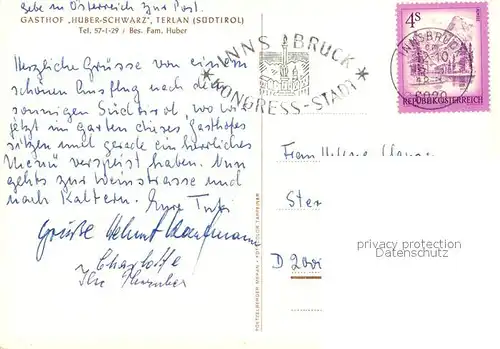 gebe in Österreich zur Post.
GASTHOF „HUBER-SCHWARZ", TERLAN (SÜDTIROL)
Tel. 57-1-29 / Bes. Fam. Huber
Herzliche Grüsse von einem
schönen Ausflug nach dem
sonnigen Südtirol, wo wir
jetzt im Garten dieses Gasthofes
sitzen und gerade ein herrliches
Menü verspeist haben. Nun
gehts zur Weinstrasse und
nach Kaltern. Eure
Grüße Helmut Kaufmann
Charlotte
Ilse
INNSBRUCK
KONGRESS-STADT
4S
REPUBLIK ÖSTERREICH
INNSBRUCK
6020
Frau
Ster
D 200
privacy protection
Datenschutz